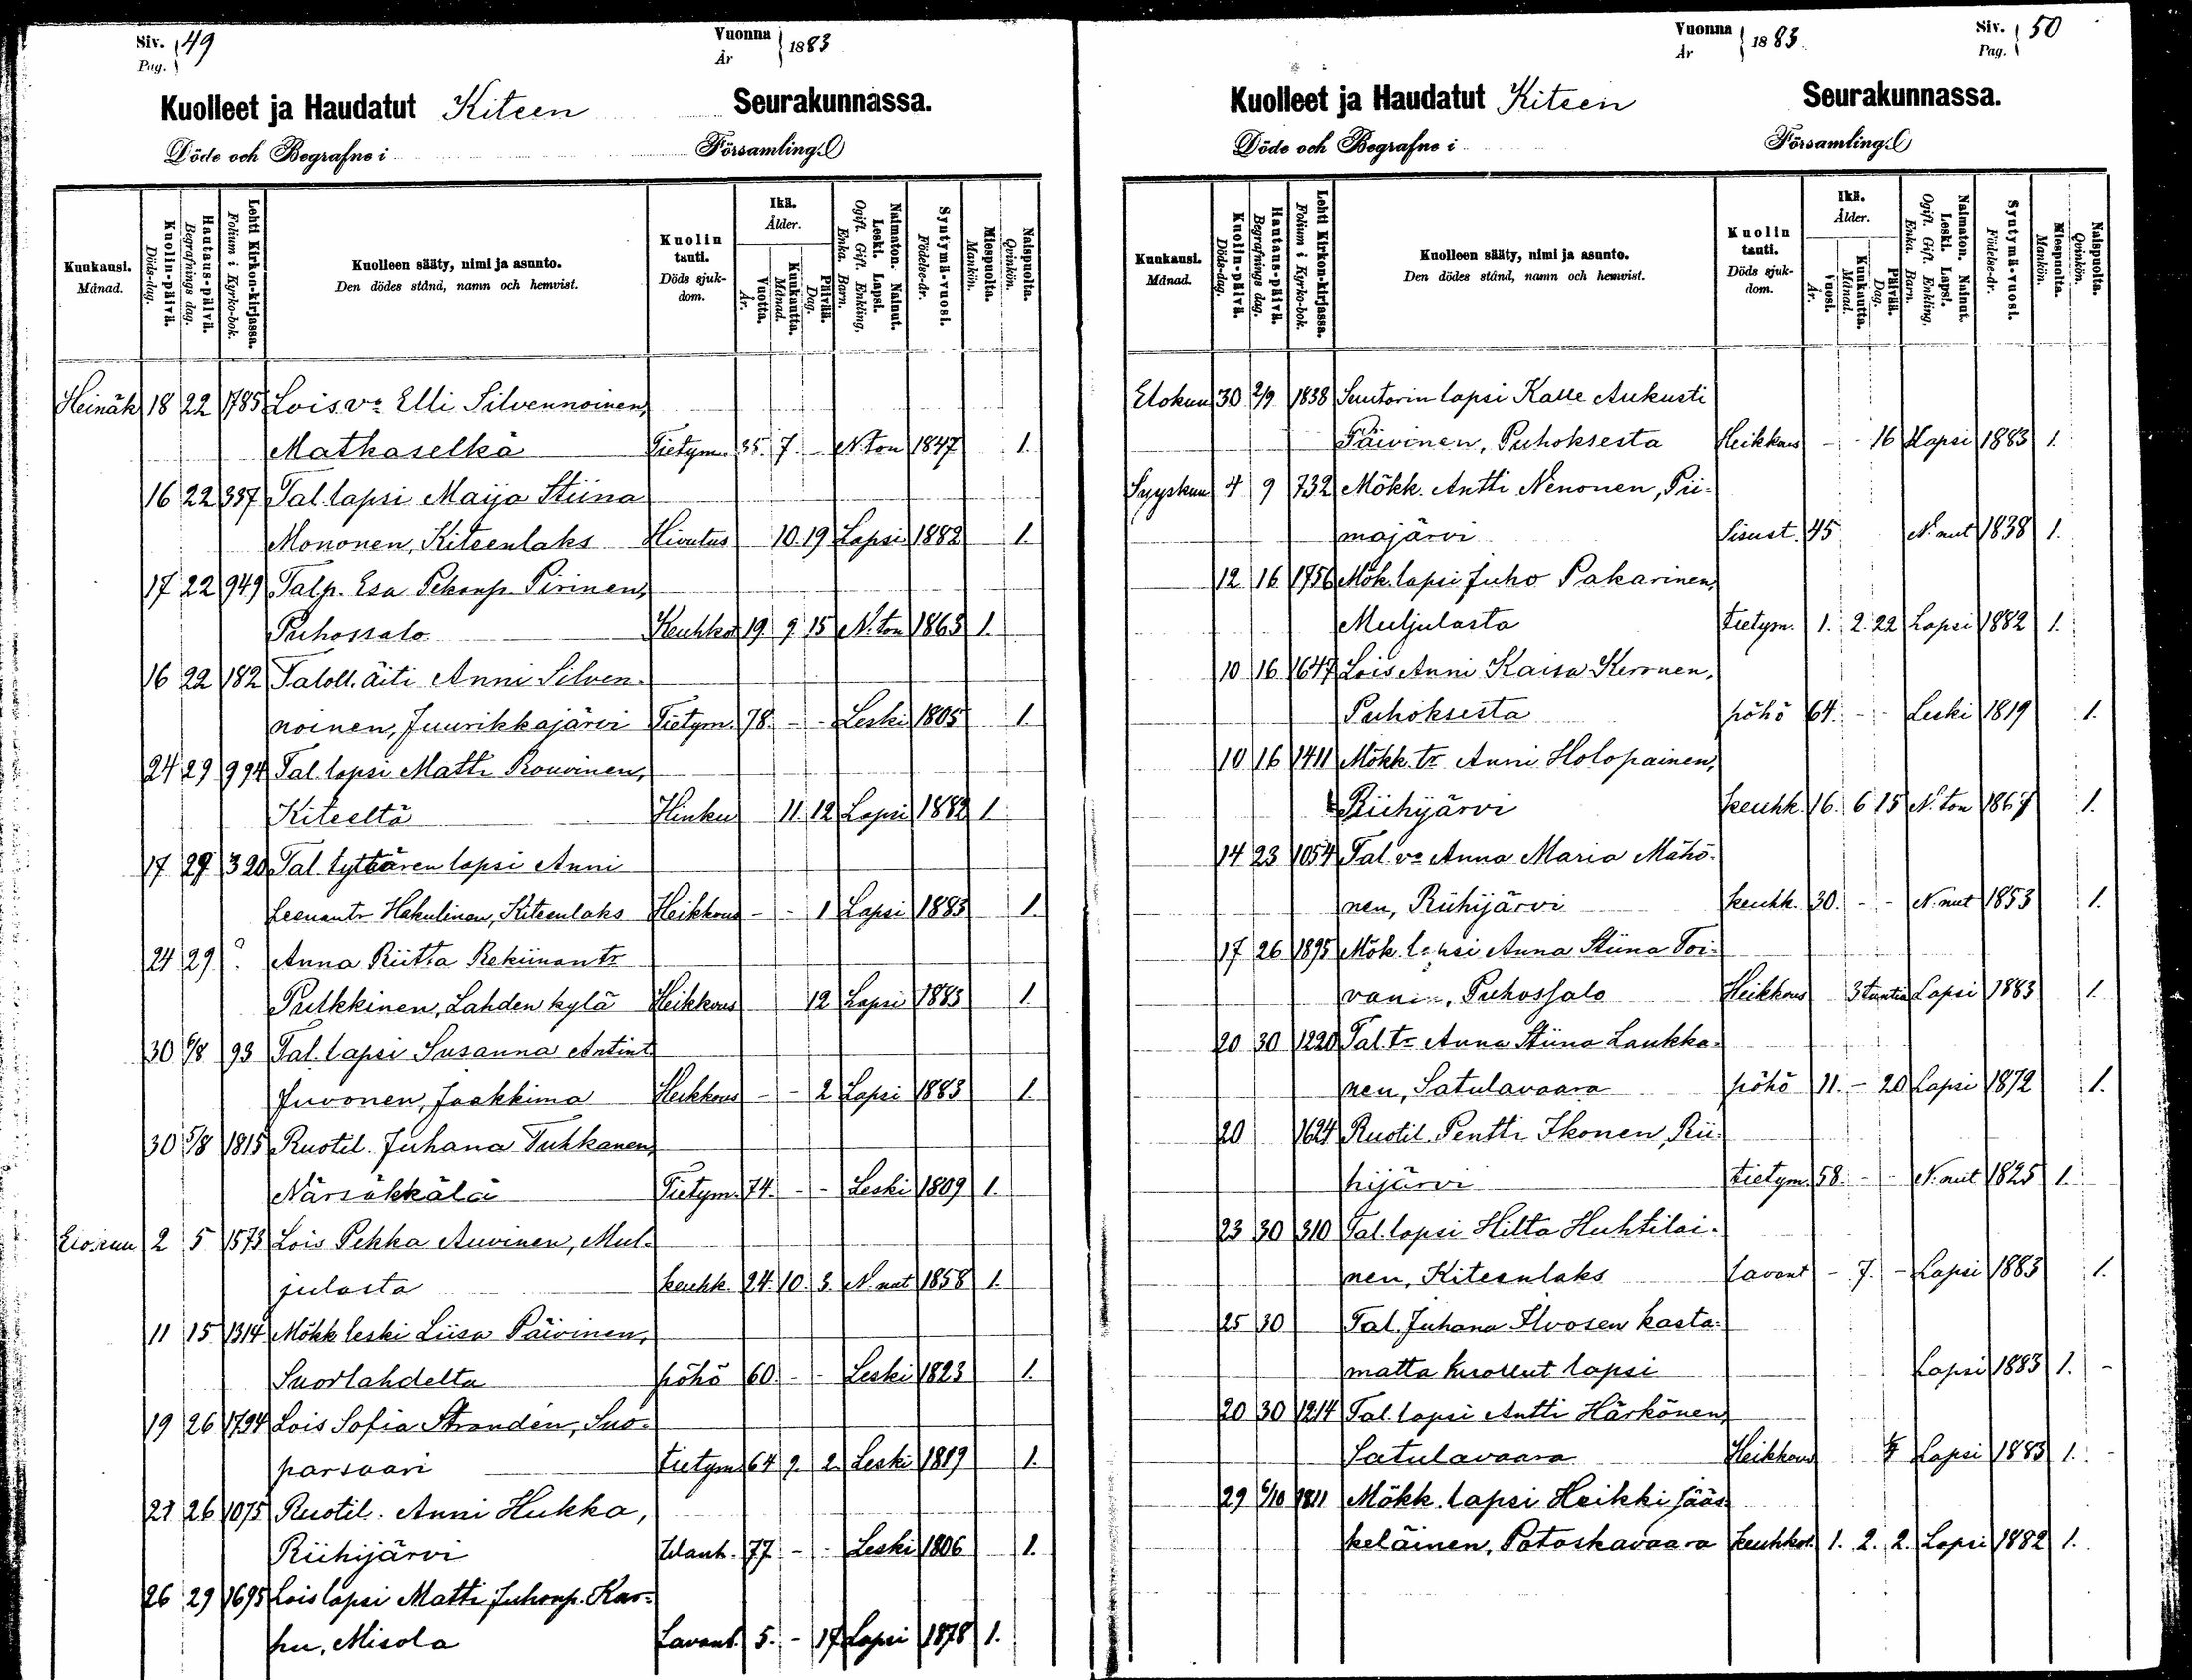 Siv. Pag. 49
Vuonna År 1883
Kuolleet ja Haudatut Kiteen Seurakunnassa.
Döde och Begrafne i Församling.
Kuukausi. Månad.
Kuolin-päivä. Döds-dag.
Hautaus-päivä. Begrafnings dag.
Lehti Kirkon-kirjassa. Folium i Kyrko-bok.
Kuolleen sääty, nimi ja asunto. Den dödes stånd, namn och hemvist.
Kuolin tauti. Döds sjukdom.
Ikä. Ålder.
Vuotta. År.
Kuukautta. Månad.
Päivää. Dag.
Naimaton. Nainut. Leski. Lapsi. Ogift. Gift. Enkling, Enka. Barn.
Syntymä-vuosi. Födelse-år.
Miespuolta. Mankön.
Naispuolta. Qvinkön.
Heinäk 18 22 1785 Lois. va Elli Silvennoinen,
Matkaselkä Tietym. 35. 7. - N:ton 1847 1.
16 22 337 Tal. lapsi Maija Stiina
Mononen, Kiteenlaks Hivutus 10. 19 Lapsi 1882 1.
17 22 949 Tal.p. Esa Pekanp. Pirinen,
Puhossalo Keuhko 19. 9 15 N:ton 1863 1.
16 22 182 Taloll. äiti Anni Silven-
noinen, Juurikkajärvi Tietym. 78. - - Leski 1805 1.
24 29 994 Tal. lapsi Matti Rouvinen,
Kiteeltä Hinku 11. 12 Lapsi 1882 1
17 29 320 Tal. tyttären lapsi Anni
Leenantr Hakulinen, Kiteenlaks Heikkous - - 1 Lapsi 1883 1.
24 29 ? Anna Riitta Rekiinantr
Pulkkinen, Lahden kylä Heikkous 12 Lapsi 1883 1
30 5/8 93 Tal. lapsi Susanna Antint
Juvonen, Jaakkima Heikkous - - 2 Lapsi 1883 1.
30 5/8 1815 Ruotil. Juhana Tuhkanen,
Närsäkkälä Tietym. 74. - - Leski 1809 1.
Elokuu 2 5 1573 Lois Pekka Auvinen, Mul-
julasta keuhk. 24. 10. 3. N. nut 1858 1.
11 15 1314 Mökk leski Liisa Päivinen,
Suorlahdelta pöhö 60. - - Leski 1823 1.
19 26 1794 Lois Sofia Strandén, Suo-
parsaari tietym 64 9. 2. Leski 1819 1.
21 26 1075 Ruotil. Anni Hukka,
Riihijärvi 77 - - Leski 1806 1.
26 29 1695 Lois lapsi Matti Juhonp. Kar-
hu, Misola Lavant. 5. - 17 Lapsi 1878 1.
Vuonna År 1883
Siv. Pag. 50
Kuolleet ja Haudatut Kiteen Seurakunnassa.
Döde och Begrafne i Församling.
Kuukausi. Månad.
Kuolin-päivä. Döds-dag.
Hautaus-päivä. Begrafnings dag.
Lehti Kirkon-kirjassa. Folium i Kyrko-bok.
Kuolleen sääty, nimi ja asunto. Den dödes stånd, namn och hemvist.
Kuolin tauti. Döds sjukdom.
Ikä. Ålder.
Vuosi. År.
Kuukautta. Månad.
Päivää. Dag.
Naimaton. Nainut. Leski. Lapsi. Ogift. Gift. Enkling, Enka. Barn.
Syntymä-vuosi. Födelse-år.
Miespuolta. Mankön.
Naispuolta. Qvinkön.
Elokuu 30 2/9 1838 Suutarin lapsi Kalle Aukusti
Päivinen, Puhoksesta Heikkous - - 16 Lapsi 1883 1.
Syyskuu 4 9 732 Mökk. Antti Nenonen, Pii-
majärvi Sisust. 45 N. nut 1838 1.
12 16 1756 Mök. lapsi Juho Pakarinen,
Muljulasta tietym. 1. 2. 22 Lapsi 1882 1.
10 16 1647 Lois Anni Kaisa Kerronen,
Puhoksesta pöhö 64. - - Leski 1819 1.
10 16 1411 Mökk. tr Anni Holopainen,
Riihijärvi keuhk. 16. 6 15 N:ton 1867 1.
14 23 1054 Tal. va Anna Maria Mähö-
nen, Riihijärvi keuhk. 30. - - N. nut 1853 1.
17 26 1895 Mök. lapsi Anna Stiina Toi-
vanin, Puhossalo Heikkous 3 tuntia Lapsi 1883 1.
20 30 1220 Tal. tr Anna Stiina Laukka-
nen, Satulavaara pöhö 11. - 20 Lapsi 1872 1.
20 1624 Ruotil. Pentti Ikonen, Rii-
hijärvi tietym. 58. - - N. nut 1825 1.
23 30 310 Tal. lapsi Hilta Huhtilai-
nen, Kiteenlaks Lavant - 7. - Lapsi 1883 1.
25 30 Tal. Juhana Ilvosen kasta-
matta kuollut lapsi Lapsi 1883 1. -
20 30 1214 Tal. lapsi Antti Härkönen,
Satulavaara Heikkous Lapsi 1883 1. -
29 6/10 1811 Mökk. lapsi Heikki Jääs-
keläinen, Potoskavaara keuhkot. 1. 2. 2. Lapsi 1882 1.